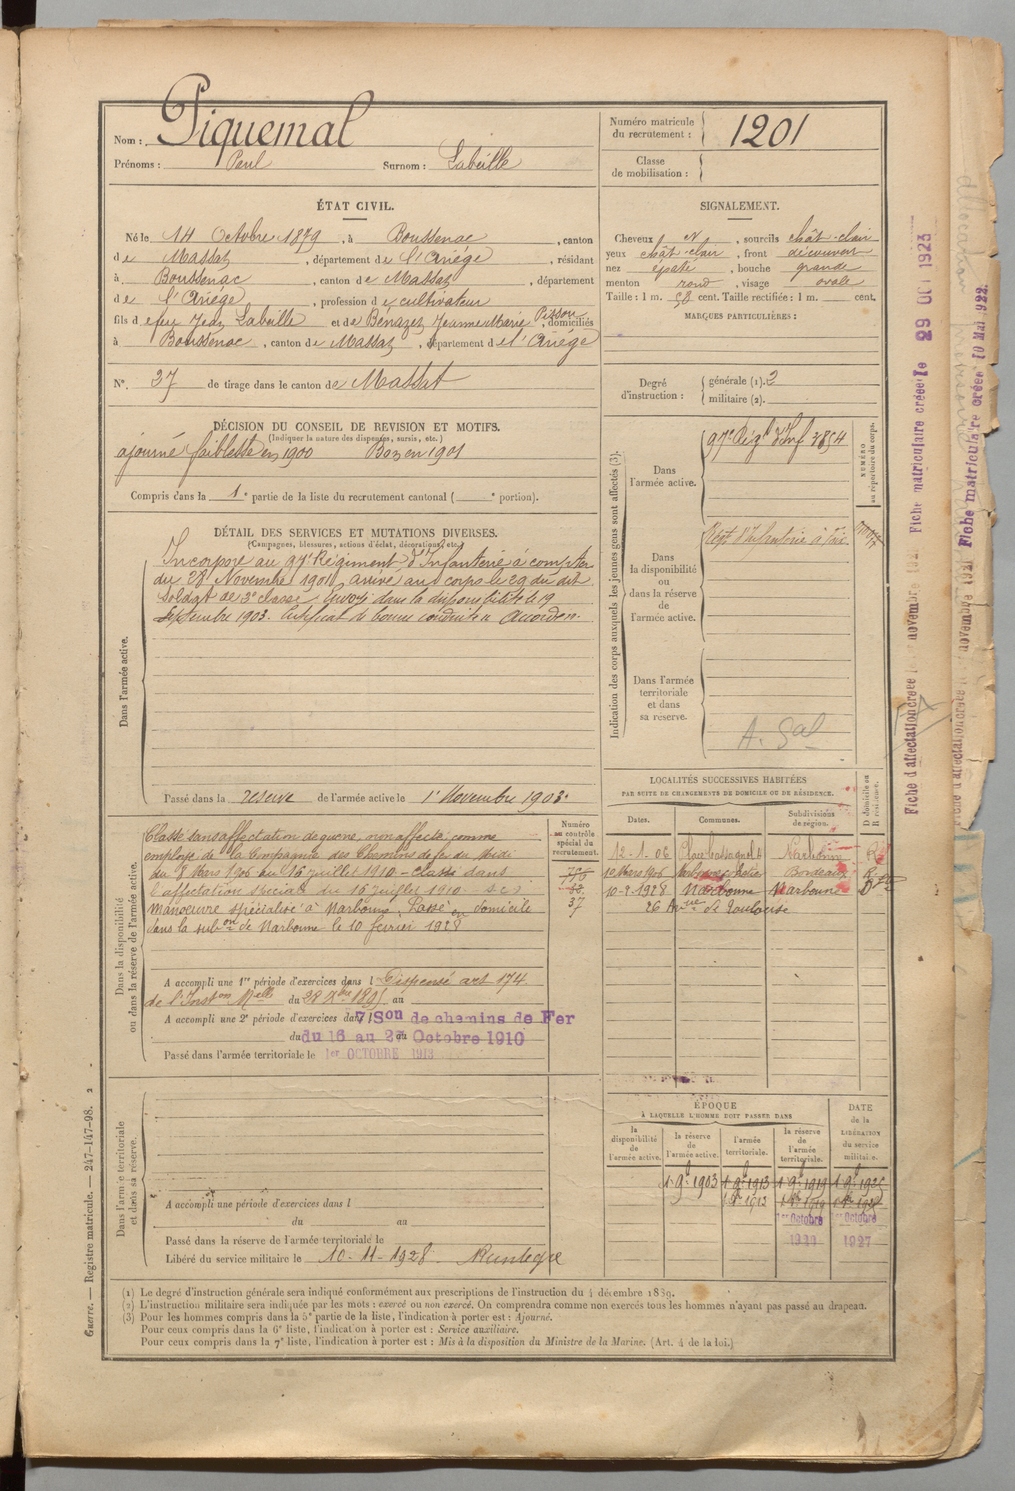 Nom : Piquemal
Prénoms : Paul Surnom : Labeille
Numéro matricule du recrutement : 1201
Classe de mobilisation :
ÉTAT CIVIL.
Né le 14 Octobre 1879, à Boussenac, canton
de Massat, département de l'Ariége, résidant
à Boussenac, canton de Massat, département
de l'Ariége, profession de cultivateur
fils de feu Jean Labeille et de Bénazet Jeanne Marie Pizzou, domiciliés
à Boussenac, canton de Massat, département de l'Ariége
N°. 37 de tirage dans le canton de Massat
SIGNALEMENT.
Cheveux N, sourcils chât-clair
yeux chât-clair, front découvert
nez épaté, bouche grande
menton rond, visage ovale
Taille : 1 m. 58 cent. Taille rectifiée : 1 m. cent.
MARQUES PARTICULIÈRES :
Degré d'instruction :
générale (1). 2
militaire (2).
DÉCISION DU CONSEIL DE REVISION ET MOTIFS.
(Indiquer la nature des dispenses, sursis, etc.)
ajourné faiblesse en 1900 Bon en 1901
Compris dans la 1e partie de la liste du recrutement cantonal ( e portion).
DÉTAIL DES SERVICES ET MUTATIONS DIVERSES.
(Campagnes, blessures, actions d'éclat, décorations, etc.)
Dans l'armée active.
Incorporé au 97e Régiment d'Infanterie à compter
du 28 Novembre 1901, arrivé au corps le 29 du dit
Soldat de 2e classe. Envoyé dans la disponibilité le 19
Septembre 1903. Certificat de bonne conduite "Accordé".
Passé dans la réserve de l'armée active le 1er Novembre 1903.
Indication des corps auxquels les jeunes gens sont affectés (3).
NUMÉRO au répertoire du corps.
Dans l'armée active.
97e Régt d'Inf 3854
Dans la disponibilité ou dans la réserve de l'armée active.
Régt d'Infanterie à
Dans l'armée territoriale et dans sa réserve.
A. Sal
LOCALITÉS SUCCESSIVES HABITÉES
PAR SUITE DE CHANGEMENTS DE DOMICILE OU DE RÉSIDENCE.
Dates. Communes. Subdivisions de région. D domicile ou R résidence.
12-1-06 Narbonne R
10 Mars 1906 Bordeaux R
10-2-1928 Narbonne Narbonne D
26 Avue de Toulouse
Dans la disponibilité ou dans la réserve de l'armée active.
Numéro au contrôle spécial du recrutement.
37
Classé sans affectation de guerre, non affecté, comme
employé de la Compagnie des Chemins de fer du Midi
du 8 Mars 1906 au 16 juillet 1910 - Classé dans
l'affectation spéciale du 16 juillet 1910 s.c.s
Manoeuvre spécialisé à Narbonne. Passé en domicile
dans la subon de Narbonne le 10 février 1928
A accompli une 1re période d'exercices dans l Dispensé art 174
de l'Inston Melle du 28 Xbre 1895 au
A accompli une 2e période d'exercices dans l 7 Son de chemins de Fer
du 16 au 27 Octobre 1910
Passé dans l'armée territoriale le 1er OCTOBRE 1913
Dans l'armée territoriale et dans sa réserve.
A accompli une période d'exercices dans l
du au
Passé dans la réserve de l'armée territoriale le
Libéré du service militaire le 10-11-1928
ÉPOQUE
À LAQUELLE L'HOMME DOIT PASSER DANS
la disponibilité de l'armée active.
la réserve de l'armée active.
l'armée territoriale.
la réserve de l'armée territoriale.
DATE de la LIBÉRATION du service militaire.
1 9bre 1903 1 9bre 1913 1 9bre 1919 1 9bre 1926
1er Octobre 1er Octobre
1927
(1) Le degré d'instruction générale sera indiqué conformément aux prescriptions de l'instruction du 4 décembre 1889.
(2) L'instruction militaire sera indiquée par les mots : exercé ou non exercé. On comprendra comme non exercés tous les hommes n'ayant pas passé au drapeau.
(3) Pour les hommes compris dans la 5e partie de la liste, l'indication à porter est : Ajourné.
Pour ceux compris dans la 6e liste, l'indication à porter est : Service auxiliaire.
Pour ceux compris dans la 7e liste, l'indication à porter est : Mis à la disposition du Ministre de la Marine. (Art. 4 de la loi.)
Guerre. — Registre matricule. — 247-147-98. 2
Fiche d'affectation créée novembre Fiche matriculaire créée le 29 OCT 1923
Fiche d'affectation créée novembre 1921 Fiche matriculaire créée 10 Mai 1922.